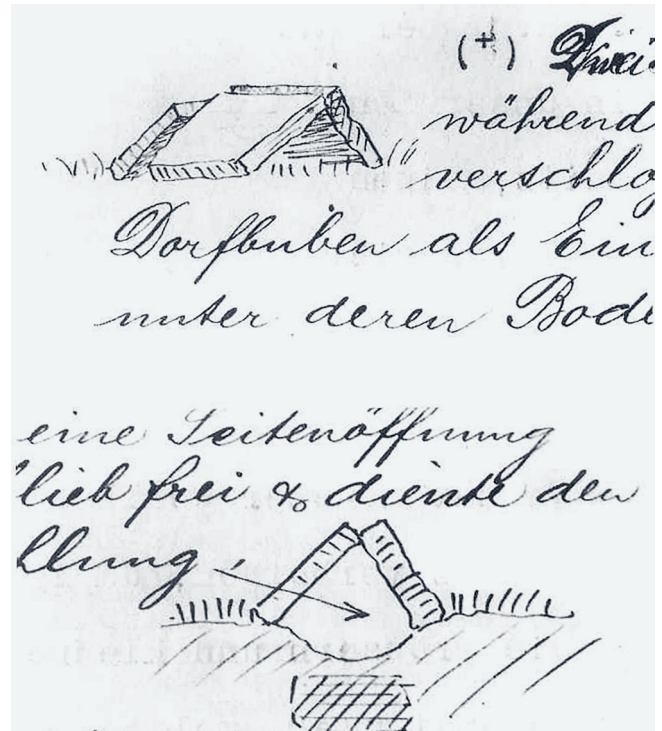 (+) Zwei
während
verschlo
Dorfbuben als Ein
unter deren Bode
eine Seitenöffnung
lieb frei & diente den
llung